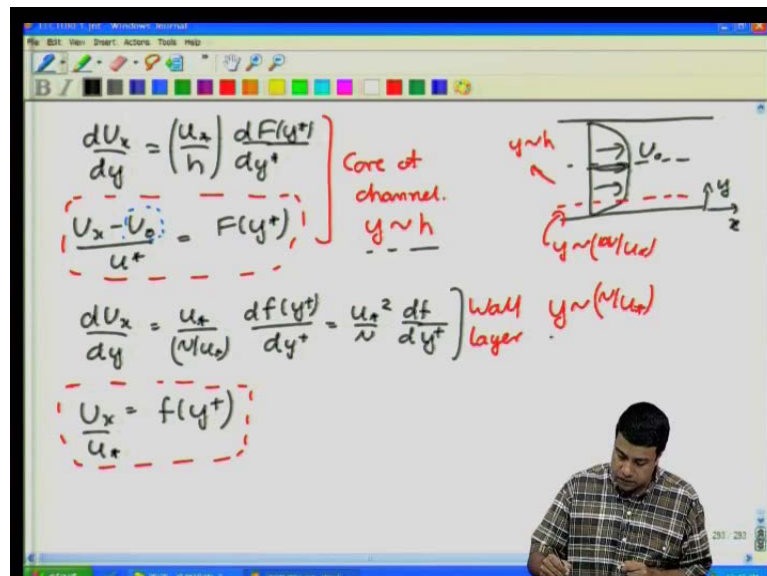 LECTURE1.jnt - Windows Journal
File Edit View Insert Actions Tools Help
B I
dUx/dy = (u*/h) dF(y+)/dy+
Core of
channel.
y~h
(Ux - U0)/u* = F(y+)
y~h
U0
y
x
y~(ν/u*)
dUx/dy = u*/(ν/u*) df(y+)/dy+ = u*²/ν df/dy+
Wall
layer
y~(ν/u*)
Ux/u* = f(y+)
293 / 293